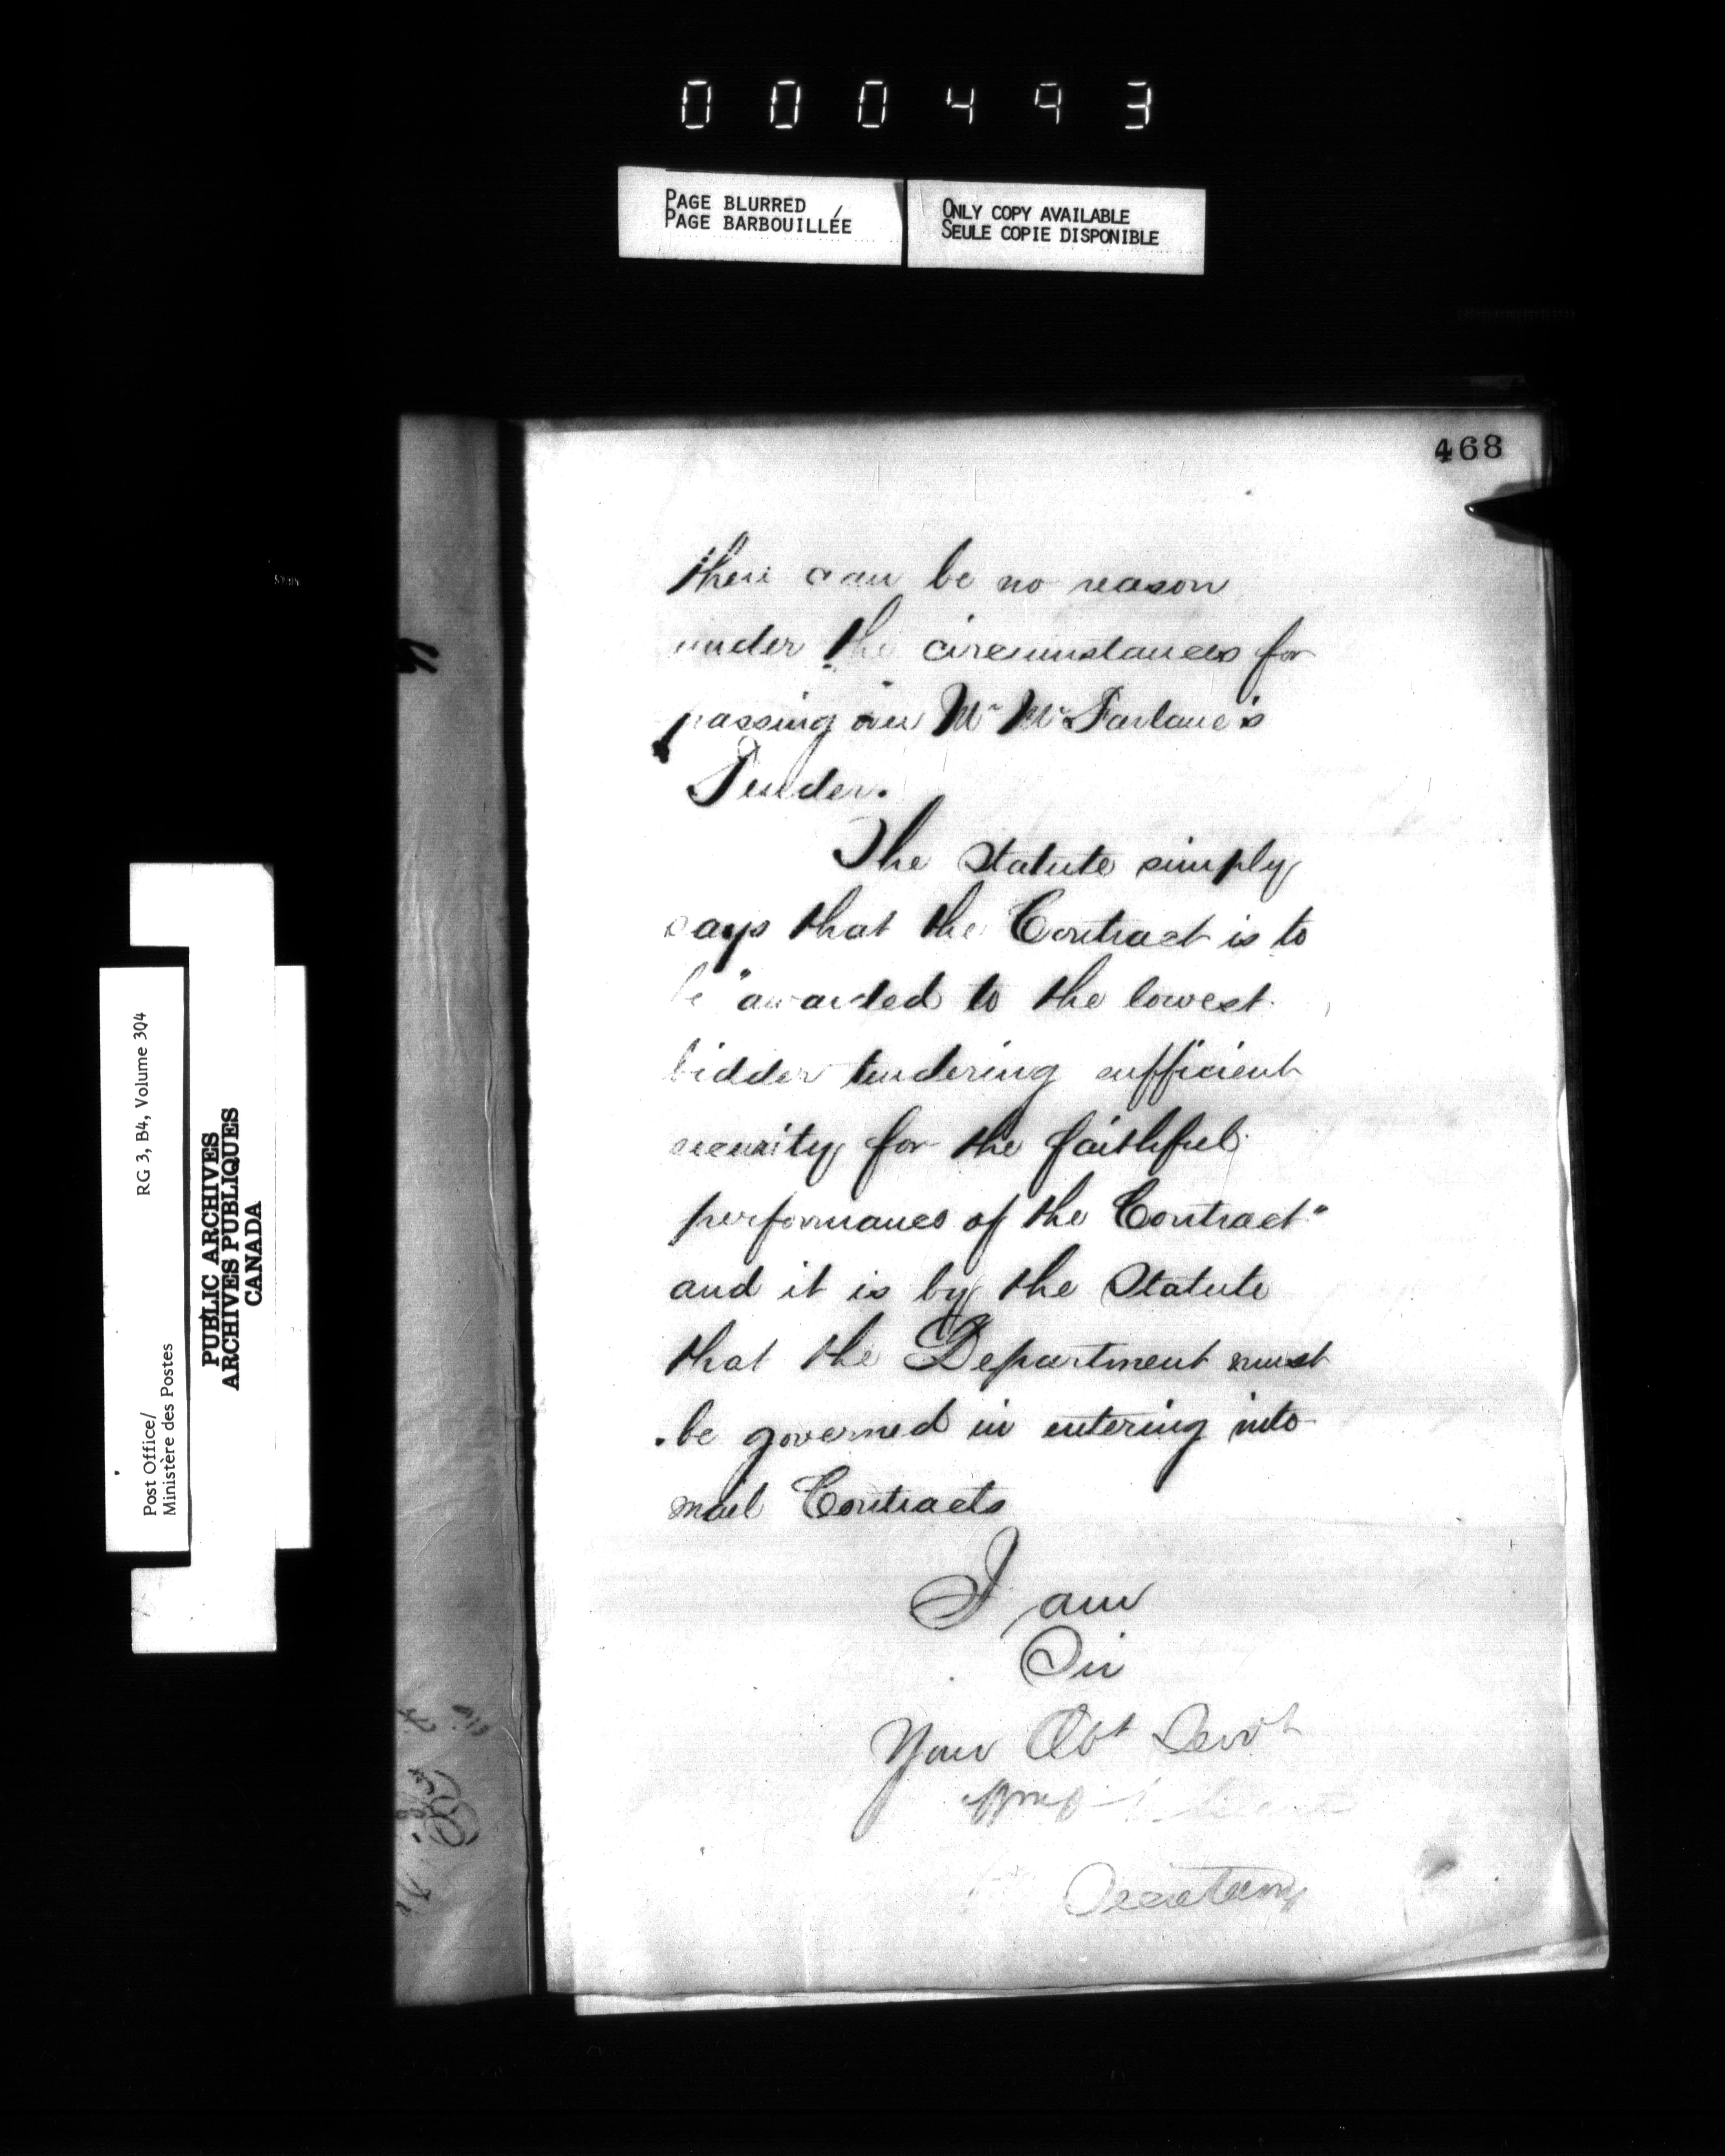 000493
PAGE BLURRED
PAGE BARBOUILLÉE
ONLY COPY AVAILABLE
SEULE COPIE DISPONIBLE
468
there can be no reason
under the circumstances for
passing over Mr McFarlane's
Tender.
The Statute simply
says that the Contract is to
be "awarded to the lowest
bidder tendering sufficient
security for the faithful
performance of the Contract"
and it is by the Statute
that the Department must
be governed in entering into
mail Contracts
I am
Sir
Your Obt Servt
Secretary
Post Office/
Ministère des Postes
RG 3, B4, Volume 304
PUBLIC ARCHIVES
ARCHIVES PUBLIQUES
CANADA